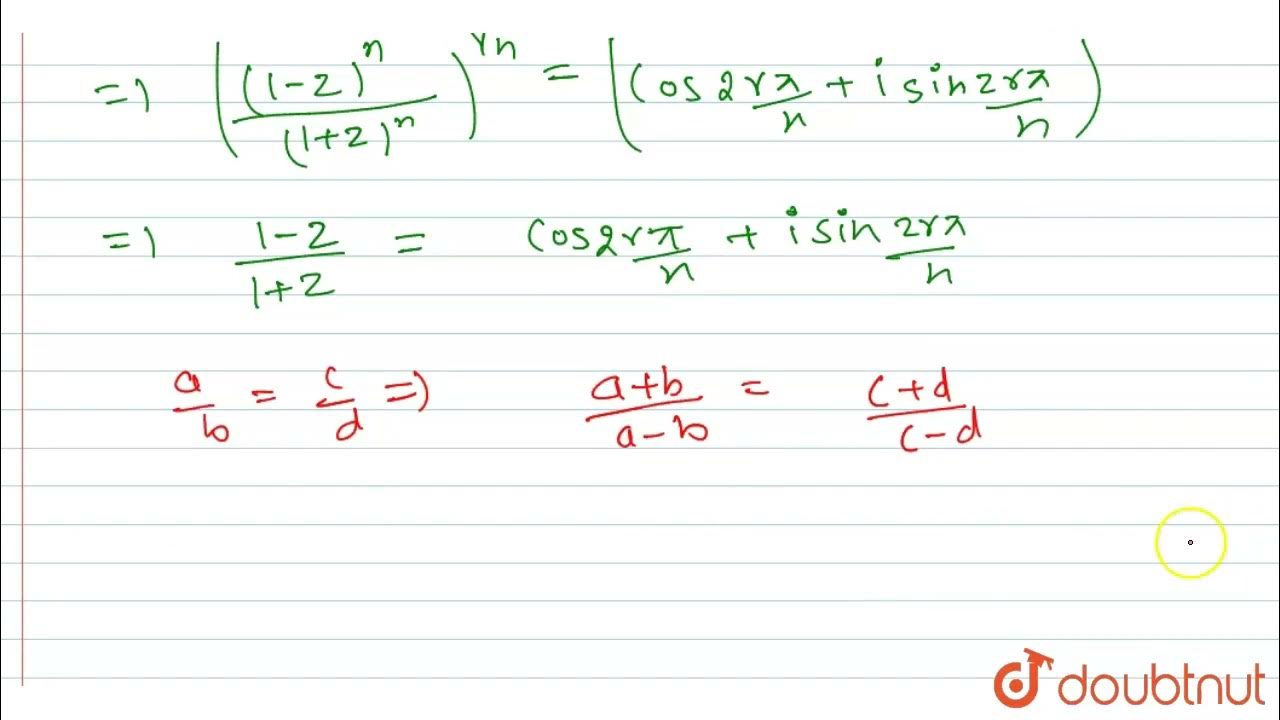 =) ((1-z)^n / (1+z)^n)^1/n = (cos 2rπ/n + i sin 2rπ/n)
=) 1-z / 1+z = cos 2rπ/n + i sin 2rπ/n
a/b = c/d =) a+b / a-b = c+d / c-d
doubtnut